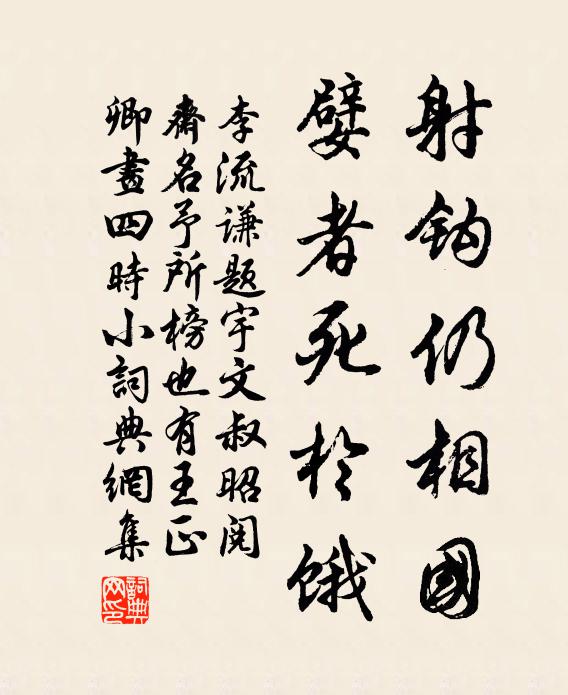 射鈎仍相國
嬖者死於餓
李流谦题宇文叔昭阅
齋名予所榜也有王正
卿畫四時小詞典網集
詞典網印